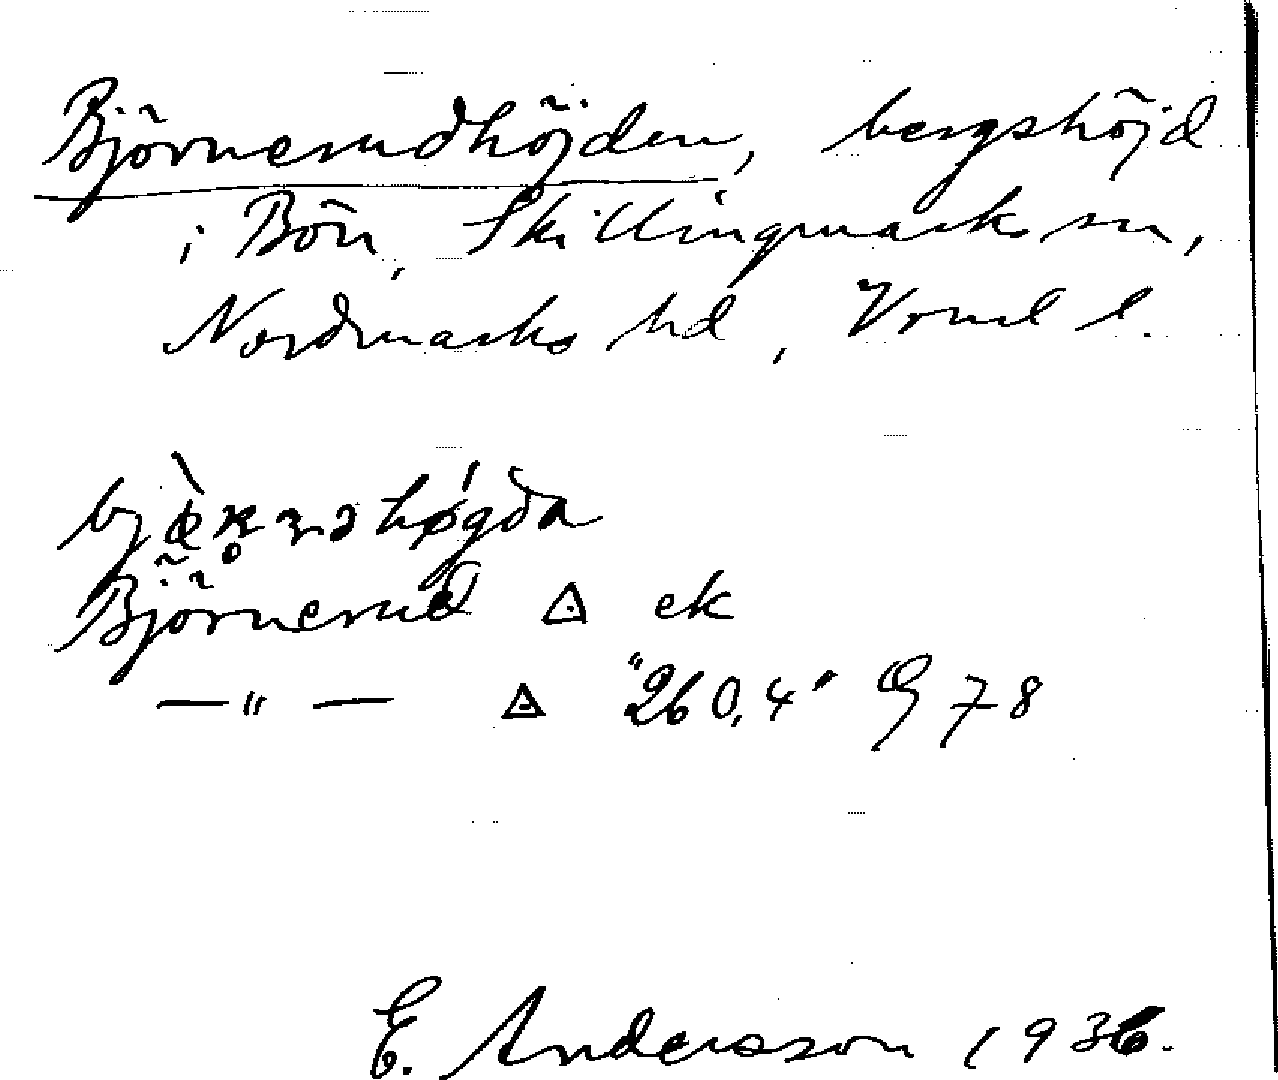 Björnerudhöjden, bergshöjd
i Bön, Skillingmarks sn,
Nordmarks hd, Vrml l.
høgda
Björnerud △ ek
—"— △ "260,4" G 78
E. Andersson 1936.